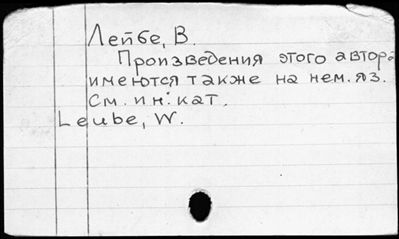 Лейбе, В.
Произведения этого автора
имеются также на нем. яз.
См. ин. кат.
Leube, W.